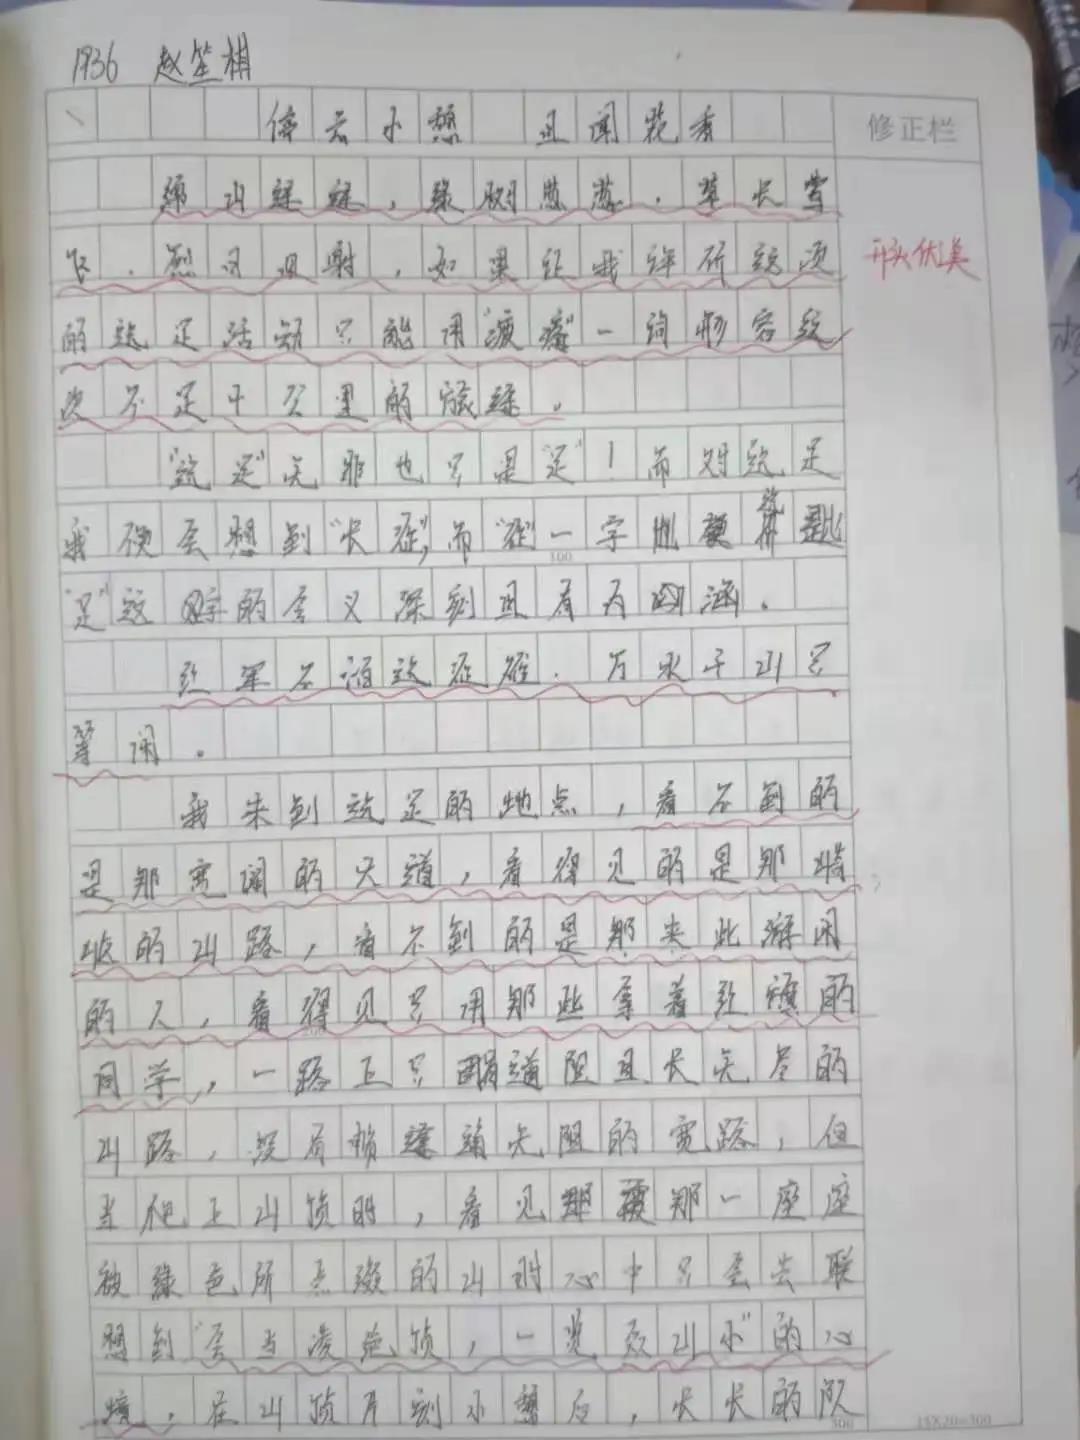 1936 赵笙棋
停云小憩 且闻花香
修正栏
绵山绿绿，绿树葱葱，草长莺
飞，烈日照射，如果让我评所这次
的远足活动只能用“疲惫”一词形容这
次不足十公里的旅途。
开头优美
“远足”无非也只是“足”！而对远足
我便会想到“长征”，而“征”一字
“足”这字的含义深刻且有内涵。
100
红军不怕远征难，万水千山只
等闲。
我来到远足的地点，看不到的
是那宽阔的大道，看得见的是那崎
岖的山路，看不到的是那来此游闲
的人，看得见只有那些拿着红旗的
同学，一路上只道阻且长无尽的
山路，没有畅通无阻的宽路，但
当爬上山顶时，看见那一座座
被绿色所点缀的山时心中只会去联
想到“会当凌绝顶，一览众山小”的心
境，在山顶片刻小憩后，长长的队
300
15X20=300